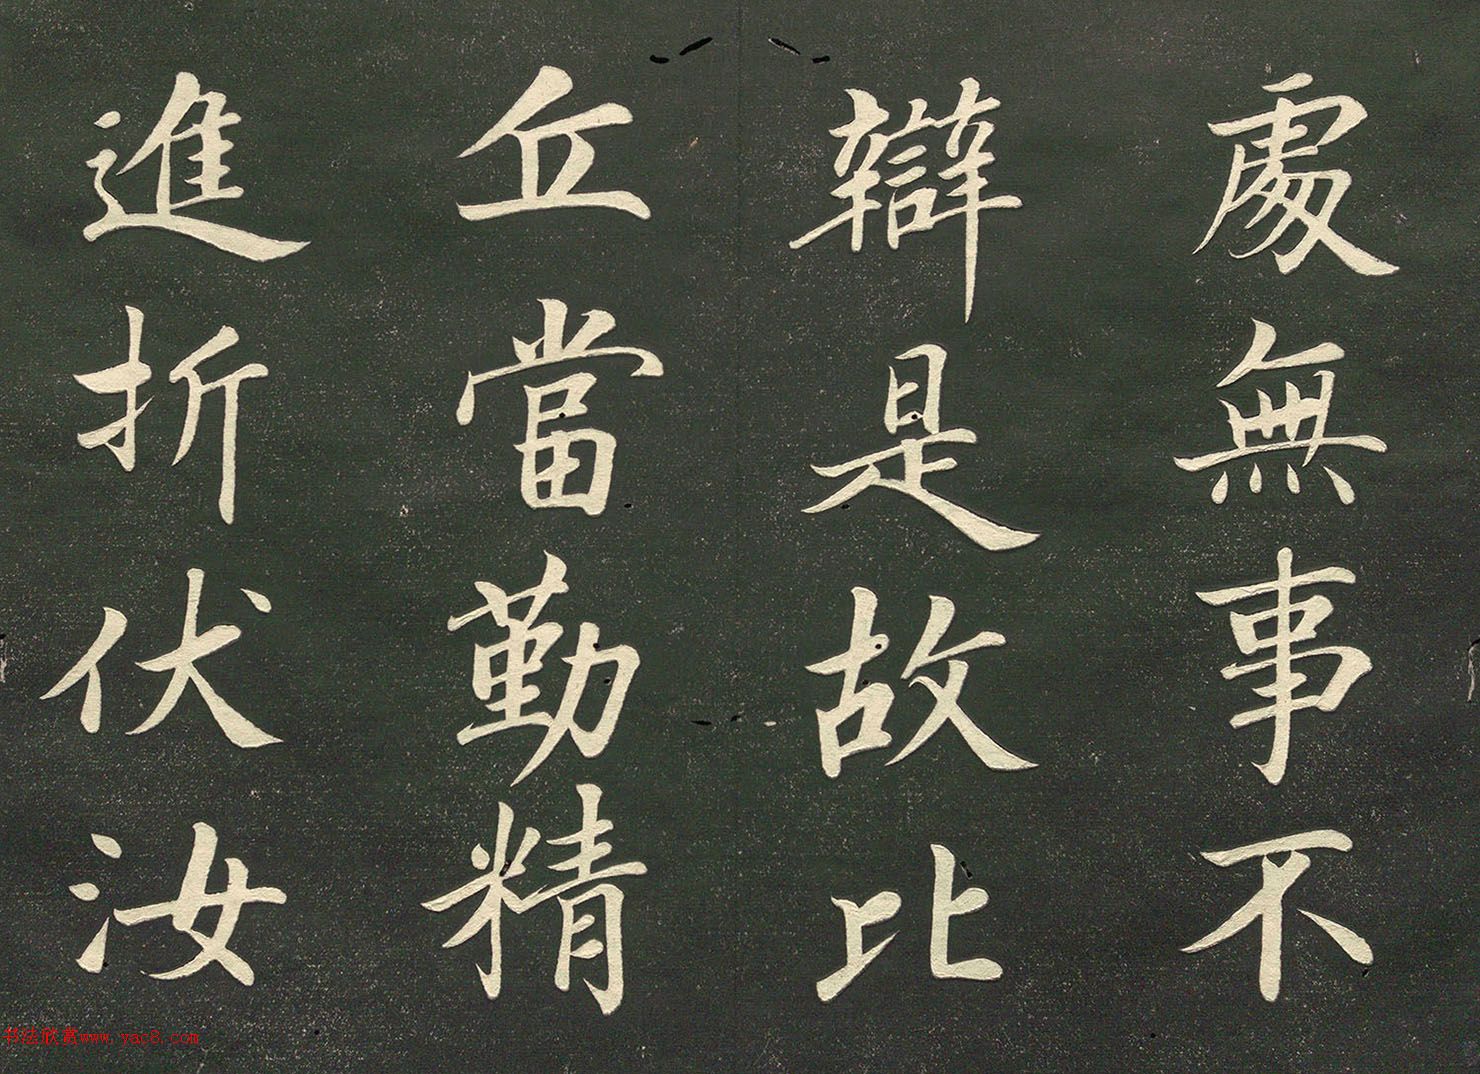 處無事不
辯是故比
丘當勤精
進折伏汝
书法欣赏www.yac8.com